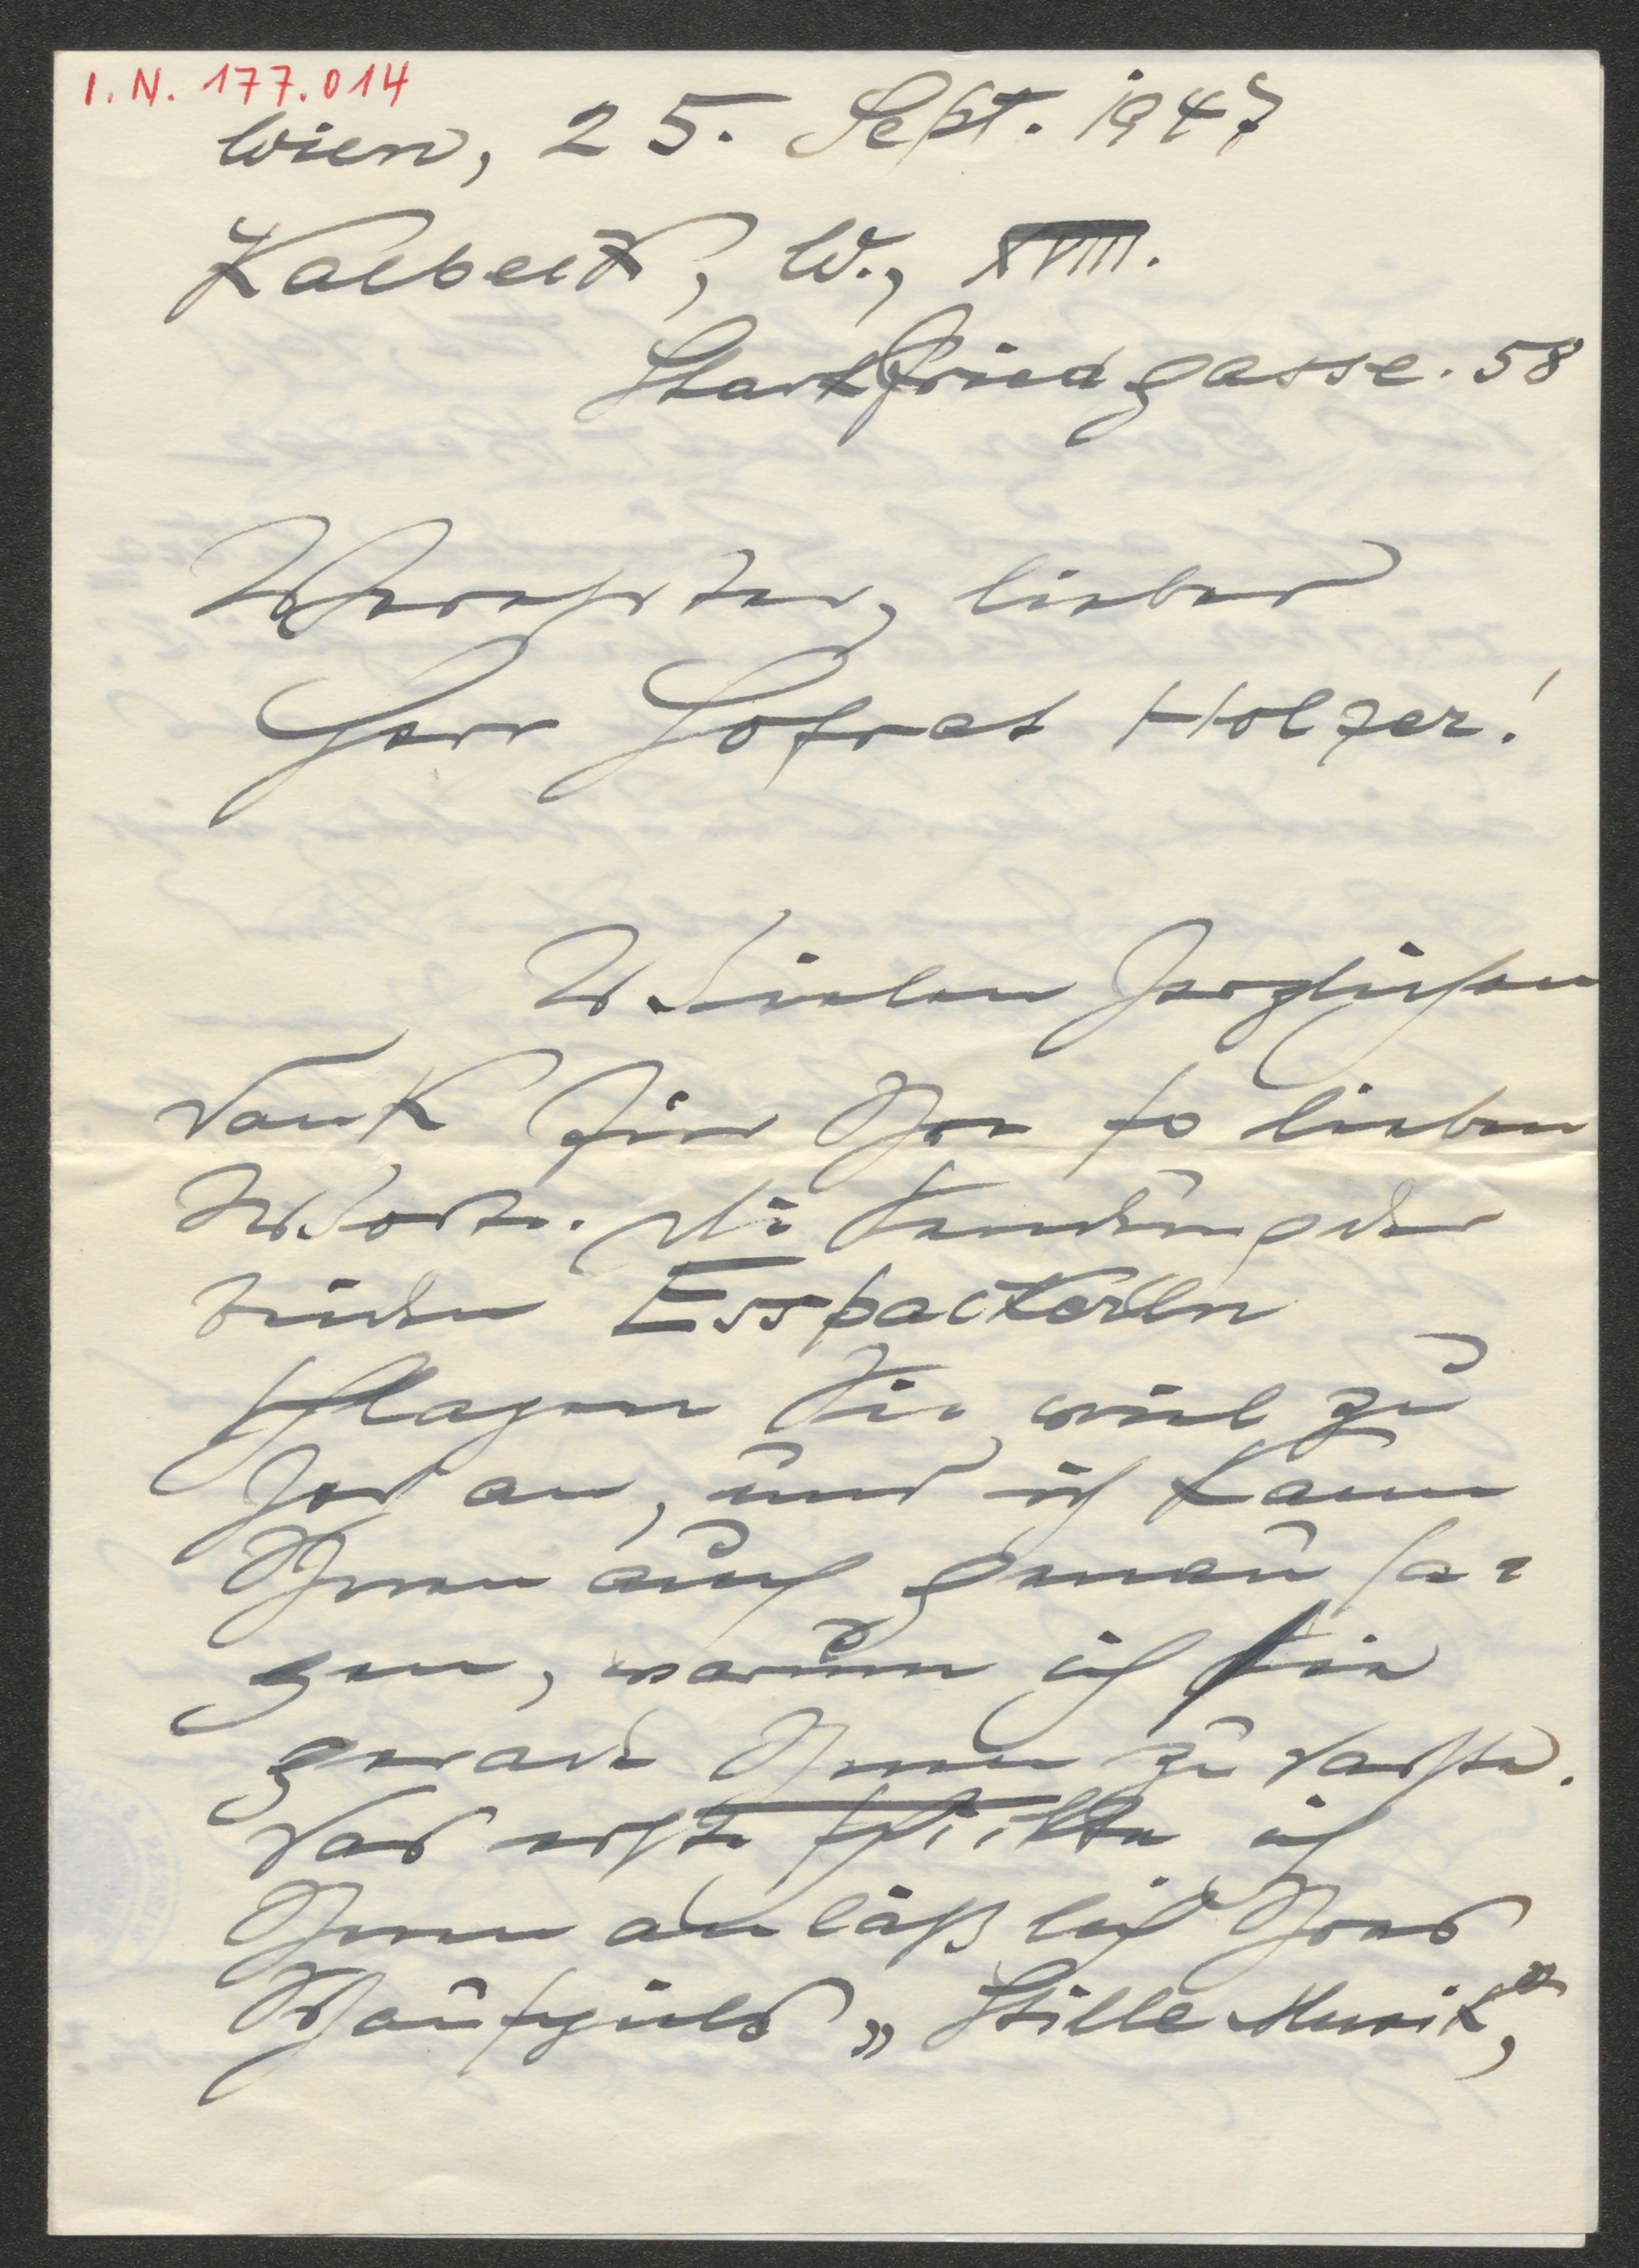 I. N. 177.014
Wien, 25. Sept. 1947
Kalbeck, W., XVIII.
Starkfriedgasse. 58
Verehrter, lieber
Herr Hofrat Holzer!
Vielen herzlichen
Dank für Ihre so lieben
Worte. Die Sendung der
beiden Esspackerln
schlagen Sie viel zu
hoch an, und ich kann
Ihnen auch genau sa=
gen, warum ich sie
gerade Ihnen zudachte.
Das erste schickte ich
Ihnen anläßlich Ihres
Schauspiels „Stille Musik",